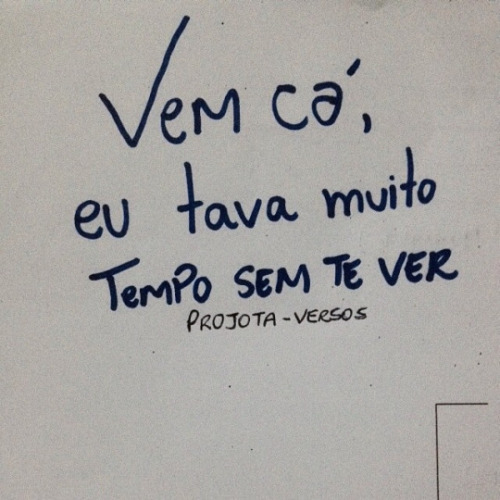 Vem cá,
eu tava muito
TemPO SEM TE VER
PROJOTA - VERSOS